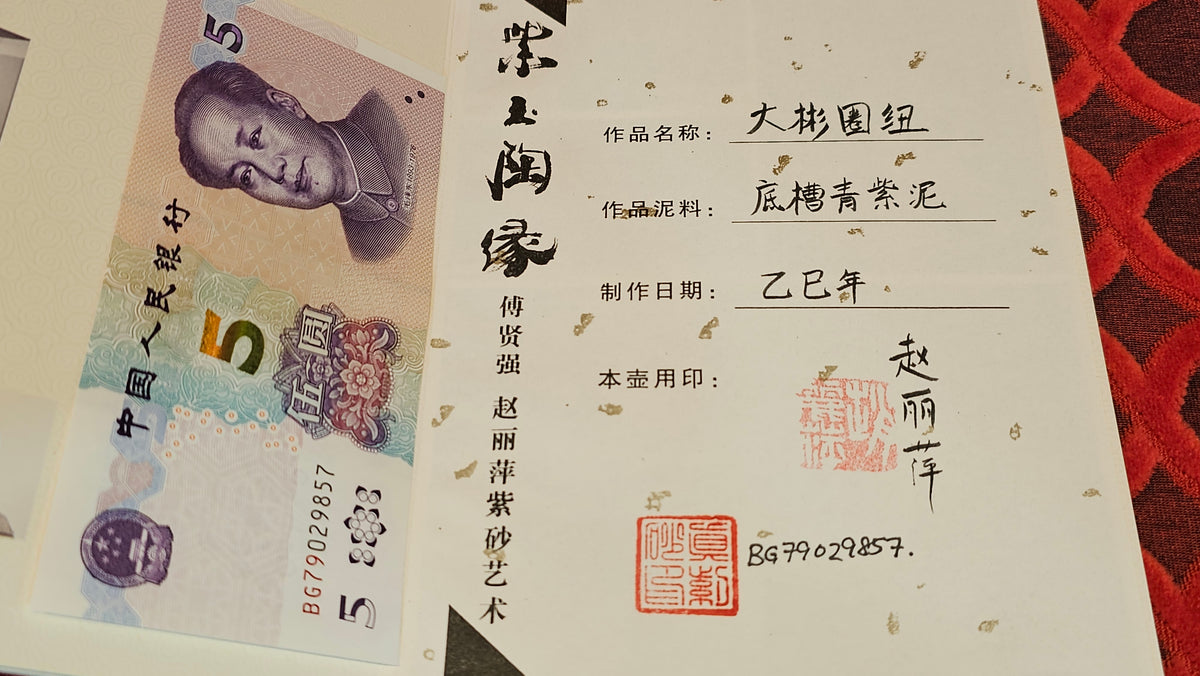 5
中国人民银行
5
伍圆
BG79029857
5
紫玉陶缘
傅贤强 赵丽萍紫砂艺术
作品名称: 大彬圈纽
作品泥料: 底槽青紫泥
制作日期: 乙巳年
本壶用印:
赵丽萍
真紫砂印
BG79029857.